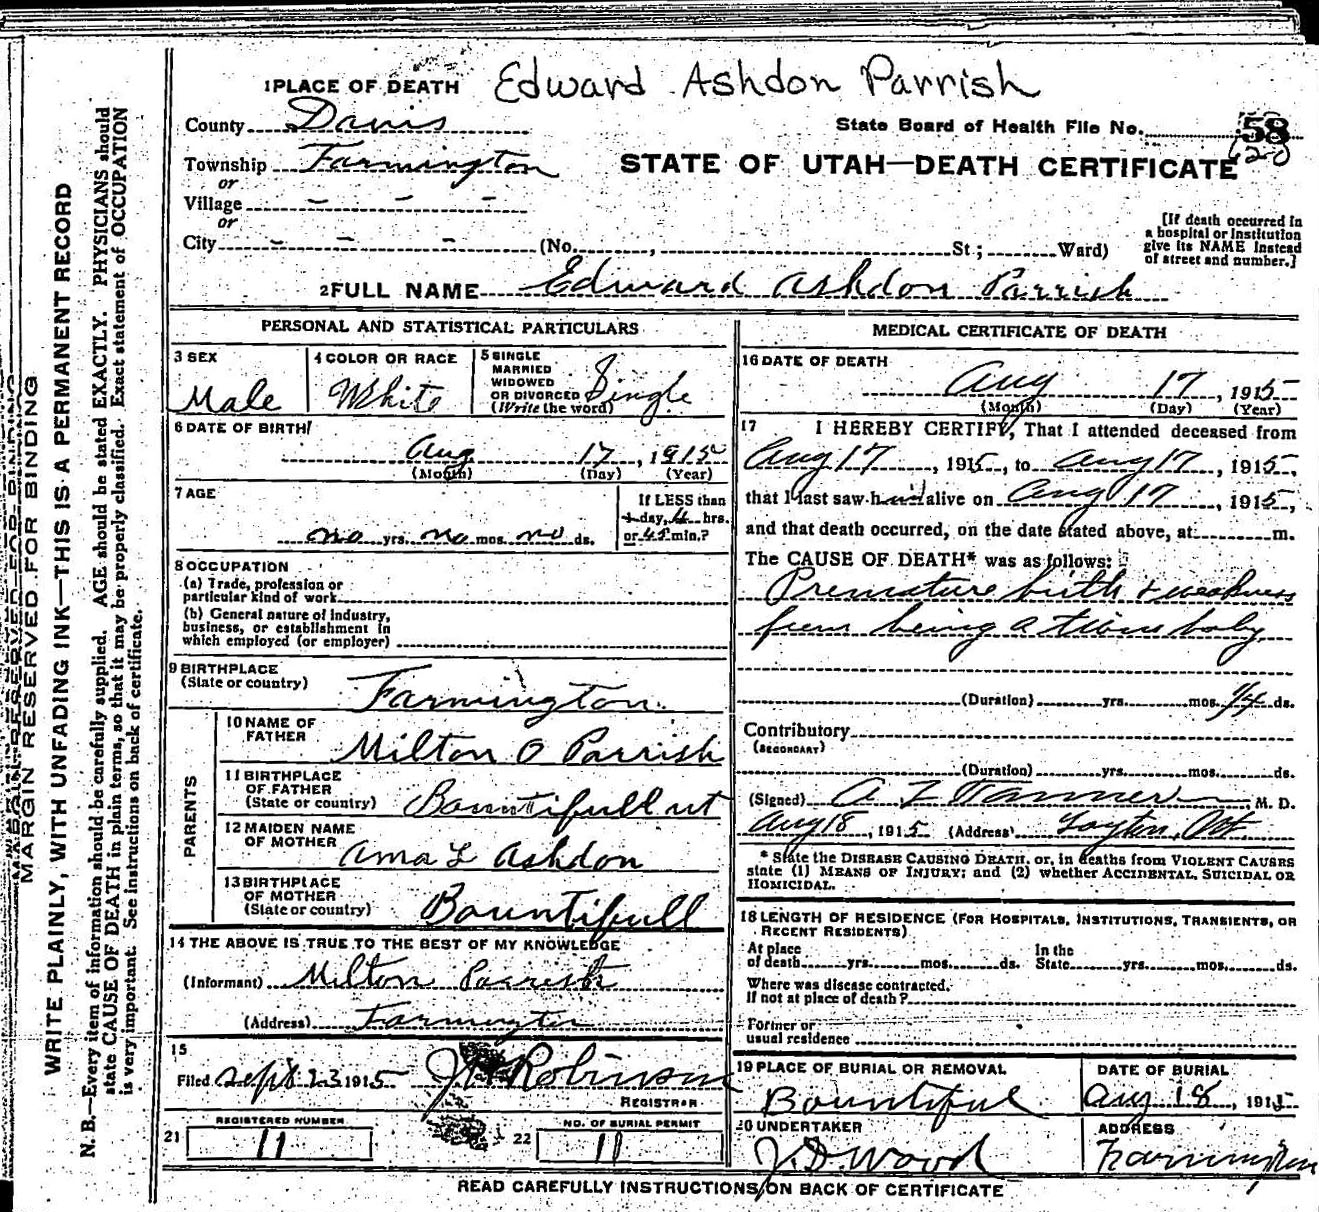 1 PLACE OF DEATH Edward Ashdon Parrish
County Davis
State Board of Health File No. 58
Township Farmington
STATE OF UTAH—DEATH CERTIFICATE
or
Village - - -
or
City - - - (No. , St; Ward)
[If death occurred in a hospital or institution give its NAME instead of street and number.]
2 FULL NAME Edward Ashdon Parrish
PERSONAL AND STATISTICAL PARTICULARS
3 SEX Male
4 COLOR OR RACE White
5 SINGLE MARRIED WIDOWED OR DIVORCED (Write the word) Single
6 DATE OF BIRTH
Aug 17, 1915
(Month) (Day) (Year)
7 AGE
no yrs. no mos. no ds.
If LESS than
1 day, 4 hrs.
or 45 min.?
8 OCCUPATION
(a) Trade, profession or
particular kind of work
(b) General nature of industry,
business, or establishment in
which employed (or employer)
9 BIRTHPLACE
(State or country) Farmington
PARENTS
10 NAME OF FATHER Milton O Parrish
11 BIRTHPLACE OF FATHER (State or country) Bountifull ut
12 MAIDEN NAME OF MOTHER Ama L Ashdon
13 BIRTHPLACE OF MOTHER (State or country) Bountifull
14 THE ABOVE IS TRUE TO THE BEST OF MY KNOWLEDGE
(Informant) Milton Parrish
(Address) Farmington
15
Filed Sept 23 1915 Robinson
REGISTRAR
21 REGISTERED NUMBER 11
22 NO. OF BURIAL PERMIT 11
MEDICAL CERTIFICATE OF DEATH
16 DATE OF DEATH
Aug 17, 1915
(Month) (Day) (Year)
17 I HEREBY CERTIFY, That I attended deceased from
Aug 17, 1915, to Aug 17, 1915,
that I last saw him alive on Aug 17, 1915,
and that death occurred, on the date stated above, at m.
The CAUSE OF DEATH* was as follows:
Premature birth & weakness
from being a twin baby
(Duration) yrs. mos. 1/4 ds.
Contributory
(SECONDARY)
(Duration) yrs. mos. ds.
(Signed) A Z Tanner, M. D.
Aug 18, 1915 (Address) Layton, Ut
* State the DISEASE CAUSING DEATH, or, in deaths from VIOLENT CAUSES
state (1) MEANS OF INJURY; and (2) whether ACCIDENTAL, SUICIDAL OR
HOMICIDAL.
18 LENGTH OF RESIDENCE (FOR HOSPITALS, INSTITUTIONS, TRANSIENTS, OR
RECENT RESIDENTS)
At place of death yrs. mos. ds. In the State yrs. mos. ds.
Where was disease contracted.
If not at place of death?
Former or
usual residence
19 PLACE OF BURIAL OR REMOVAL
Bountiful
DATE OF BURIAL
Aug 18, 1915
20 UNDERTAKER
J. D. Wood
ADDRESS
Farmington
READ CAREFULLY INSTRUCTIONS ON BACK OF CERTIFICATE
MARGIN RESERVED FOR BINDING
WRITE PLAINLY, WITH UNFADING INK—THIS IS A PERMANENT RECORD
N. B.—Every item of information should be carefully supplied. AGE should be stated EXACTLY. PHYSICIANS should
state CAUSE OF DEATH in plain terms, so that it may be properly classified. Exact statement of OCCUPATION
is very important. See instructions on back of certificate.